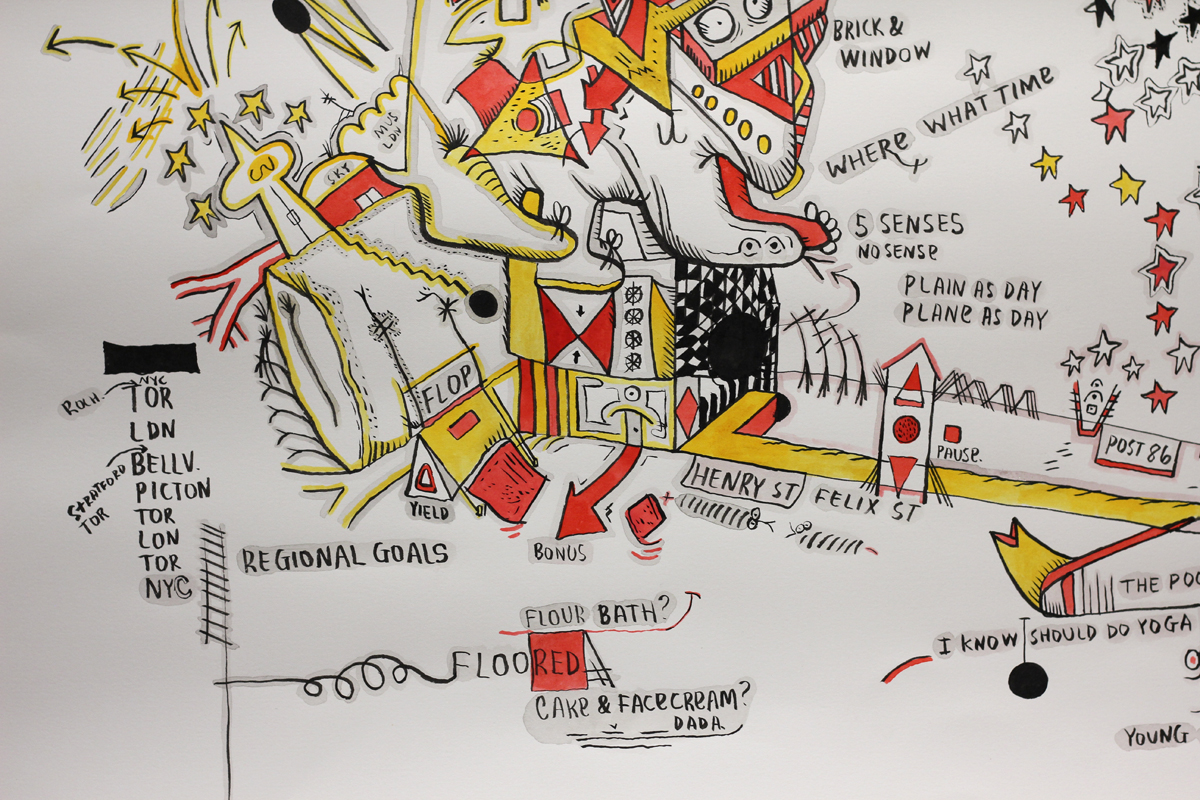 BRICK &
WINDOW
WHERE WHAT TIME
MUS
LDN
SKY
5 SENSES
NO SENSE
PLAIN AS DAY
PLANE AS DAY
NYC
ROCH.
TOR
LDN
BELLV.
STRATFORD
TOR
PICTON
TOR
LON
TOR
NYC
FLOP
YIELD
BONUS
HENRY ST
FELIX ST
PAUSE.
POST 86
REGIONAL GOALS
FLOUR BATH?
FLOORED
CAKE & FACECREAM?
DADA.
THE POO
I KNOW I SHOULD DO YOGA
YOUNG